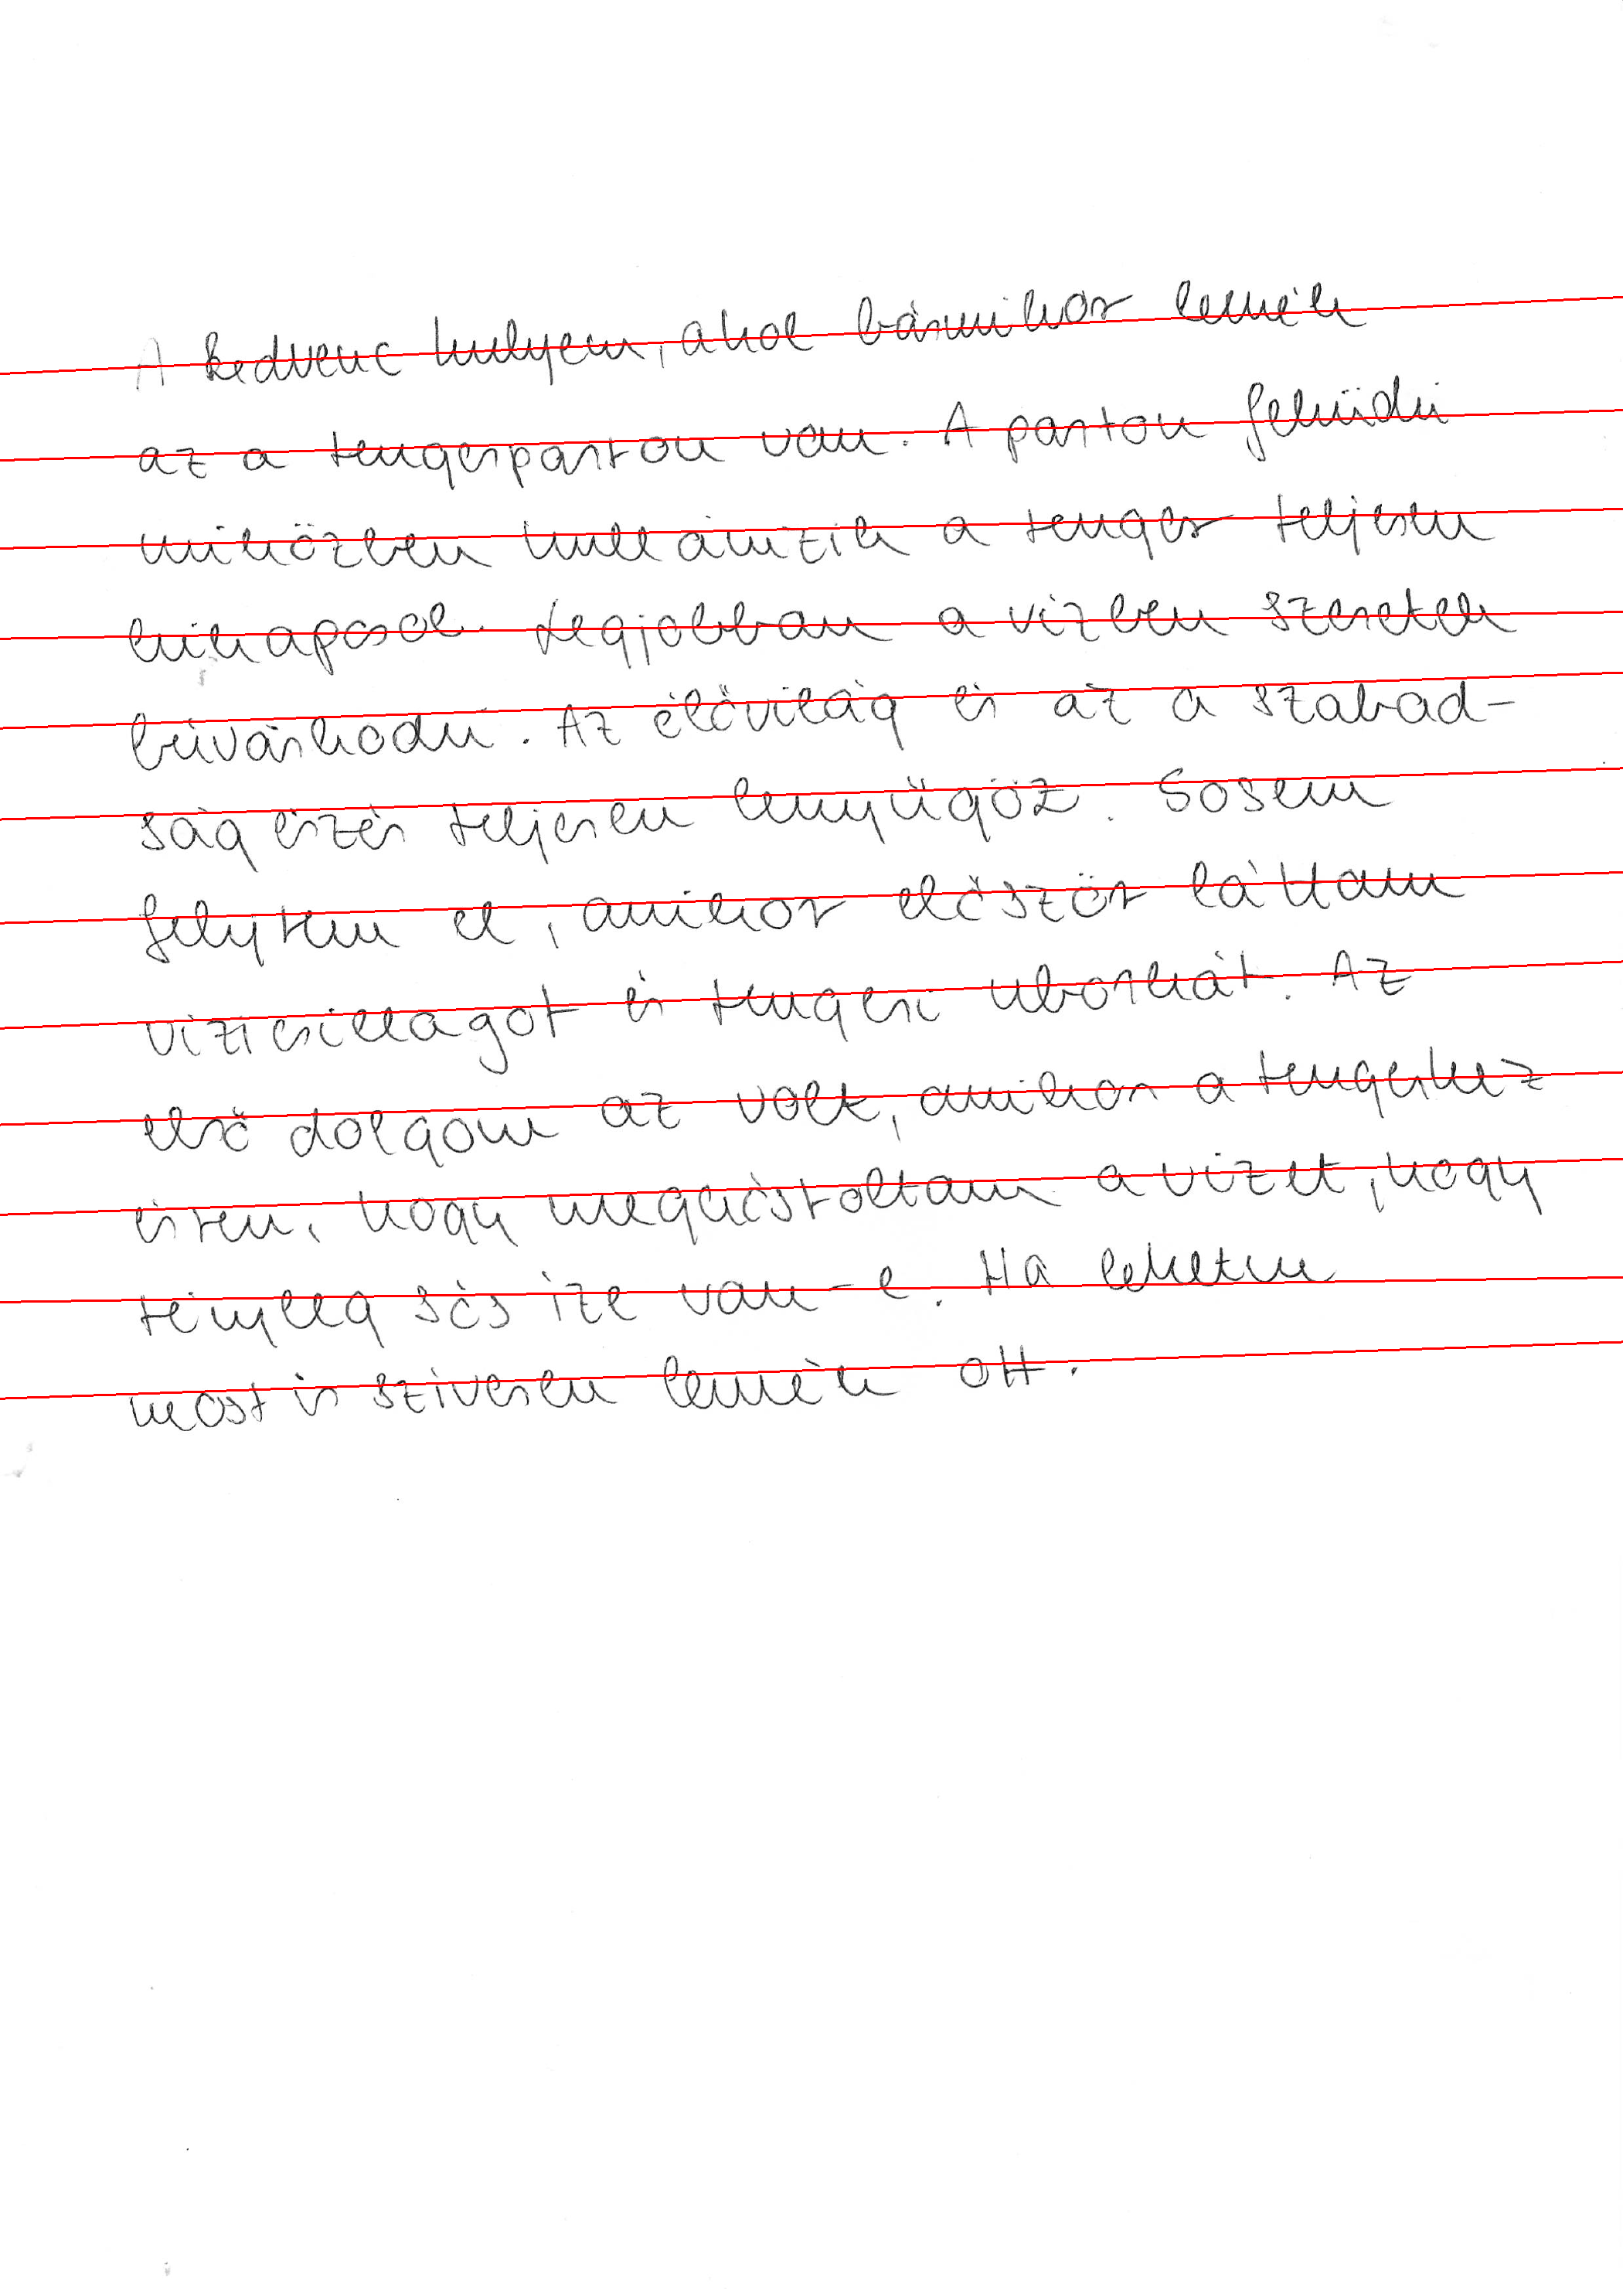 A kedvenc helyem, ahol bármikor lennék
az a tengerparton van. A parton feküdni
miközben hullámzik a tenger teljesen
kikapcsol. Legjobban a vízben szeretek
búvárkodni. Az élővilág és az a szabad-
ság érzés teljesen lenyűgöz. Sosem
felytem el, amikor először láttam
vizicsillagot és tengeri uborkát. Az
első dolgom az volt, amikor a tengerhez
értem, hogy megkóstoltam a vizet, hogy
tényleg sós íze van-e. Ha lehetne
most is szívesen lennék ott.